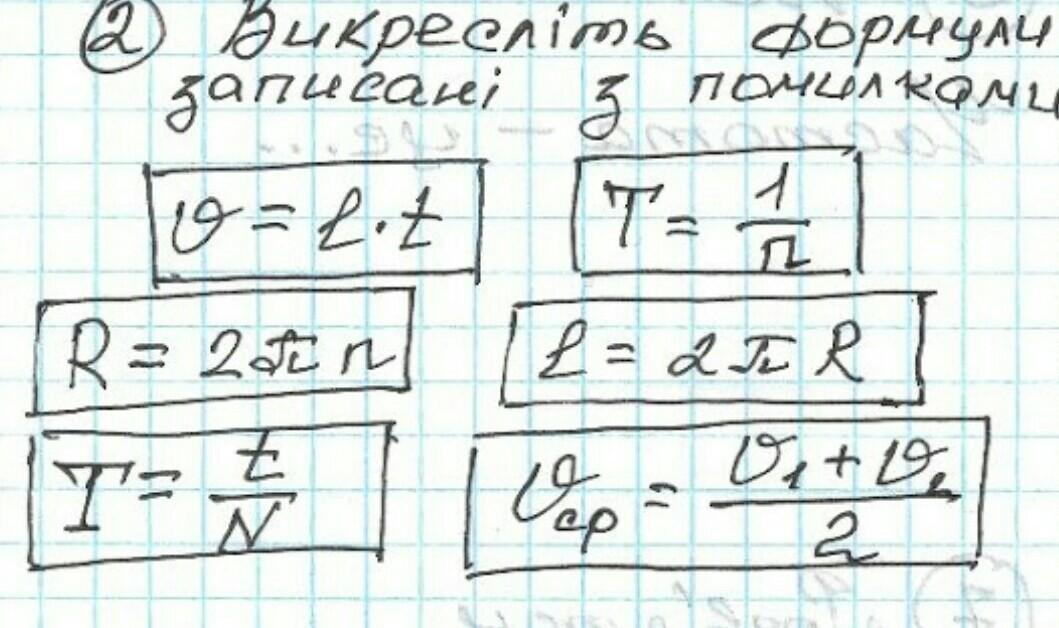 ② Викресліть формули
записані з помилками
𝑣 = ℓ · t
T = 1/n
R = 2πn
ℓ = 2πR
T = t/N
𝑣ср = (𝑣₁ + 𝑣₂)/2